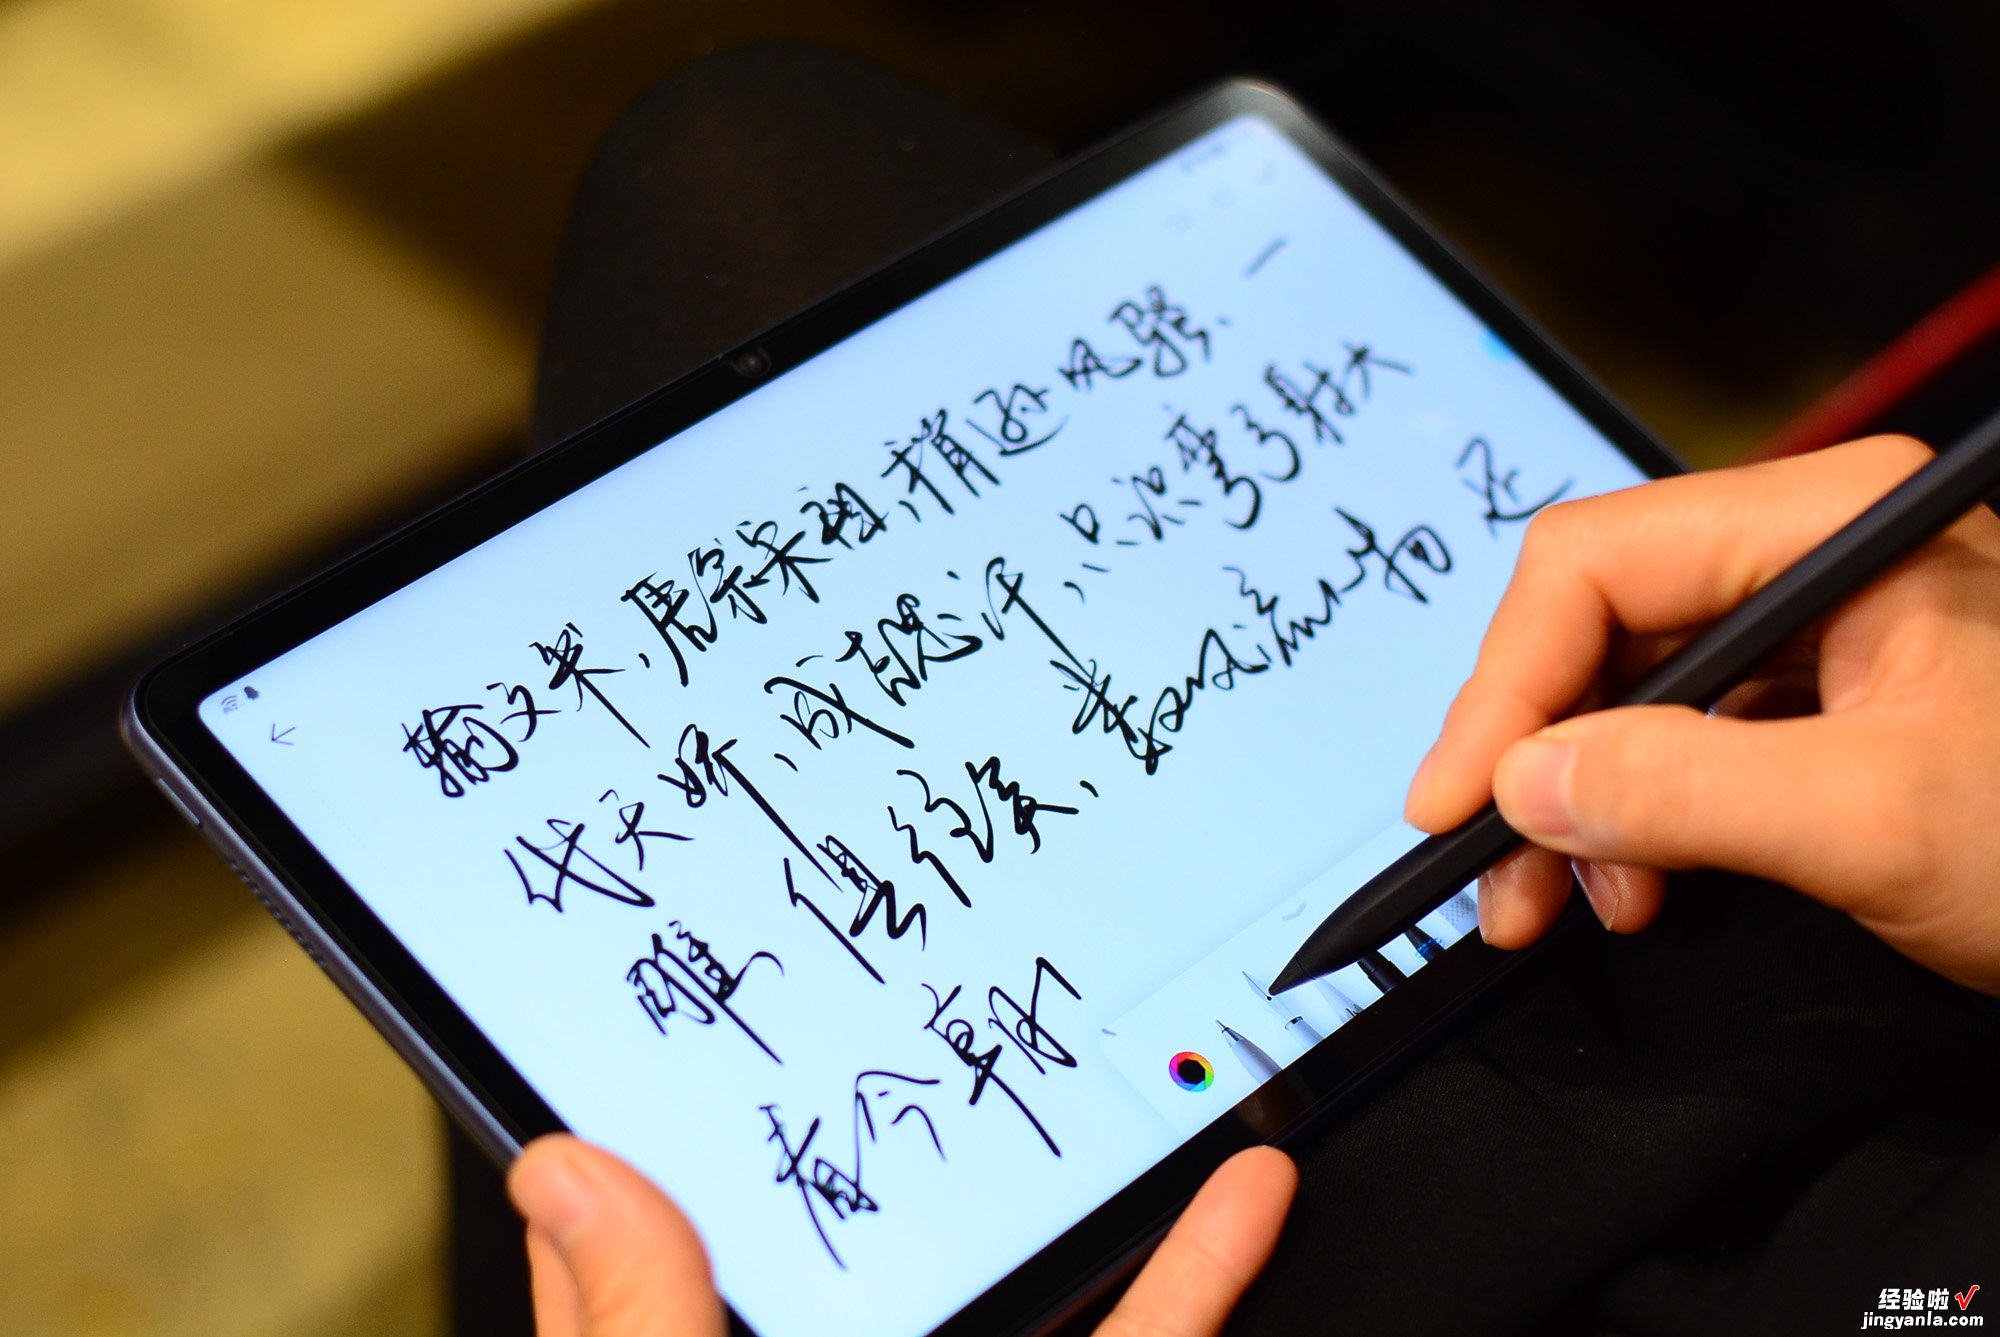 输文采,唐宗宋祖,稍逊风骚.一
代天娇,成吉思汗,只识弯弓射大
雕 俱往矣,数风流人物 还
看今朝
经验啦
jingyanla.com